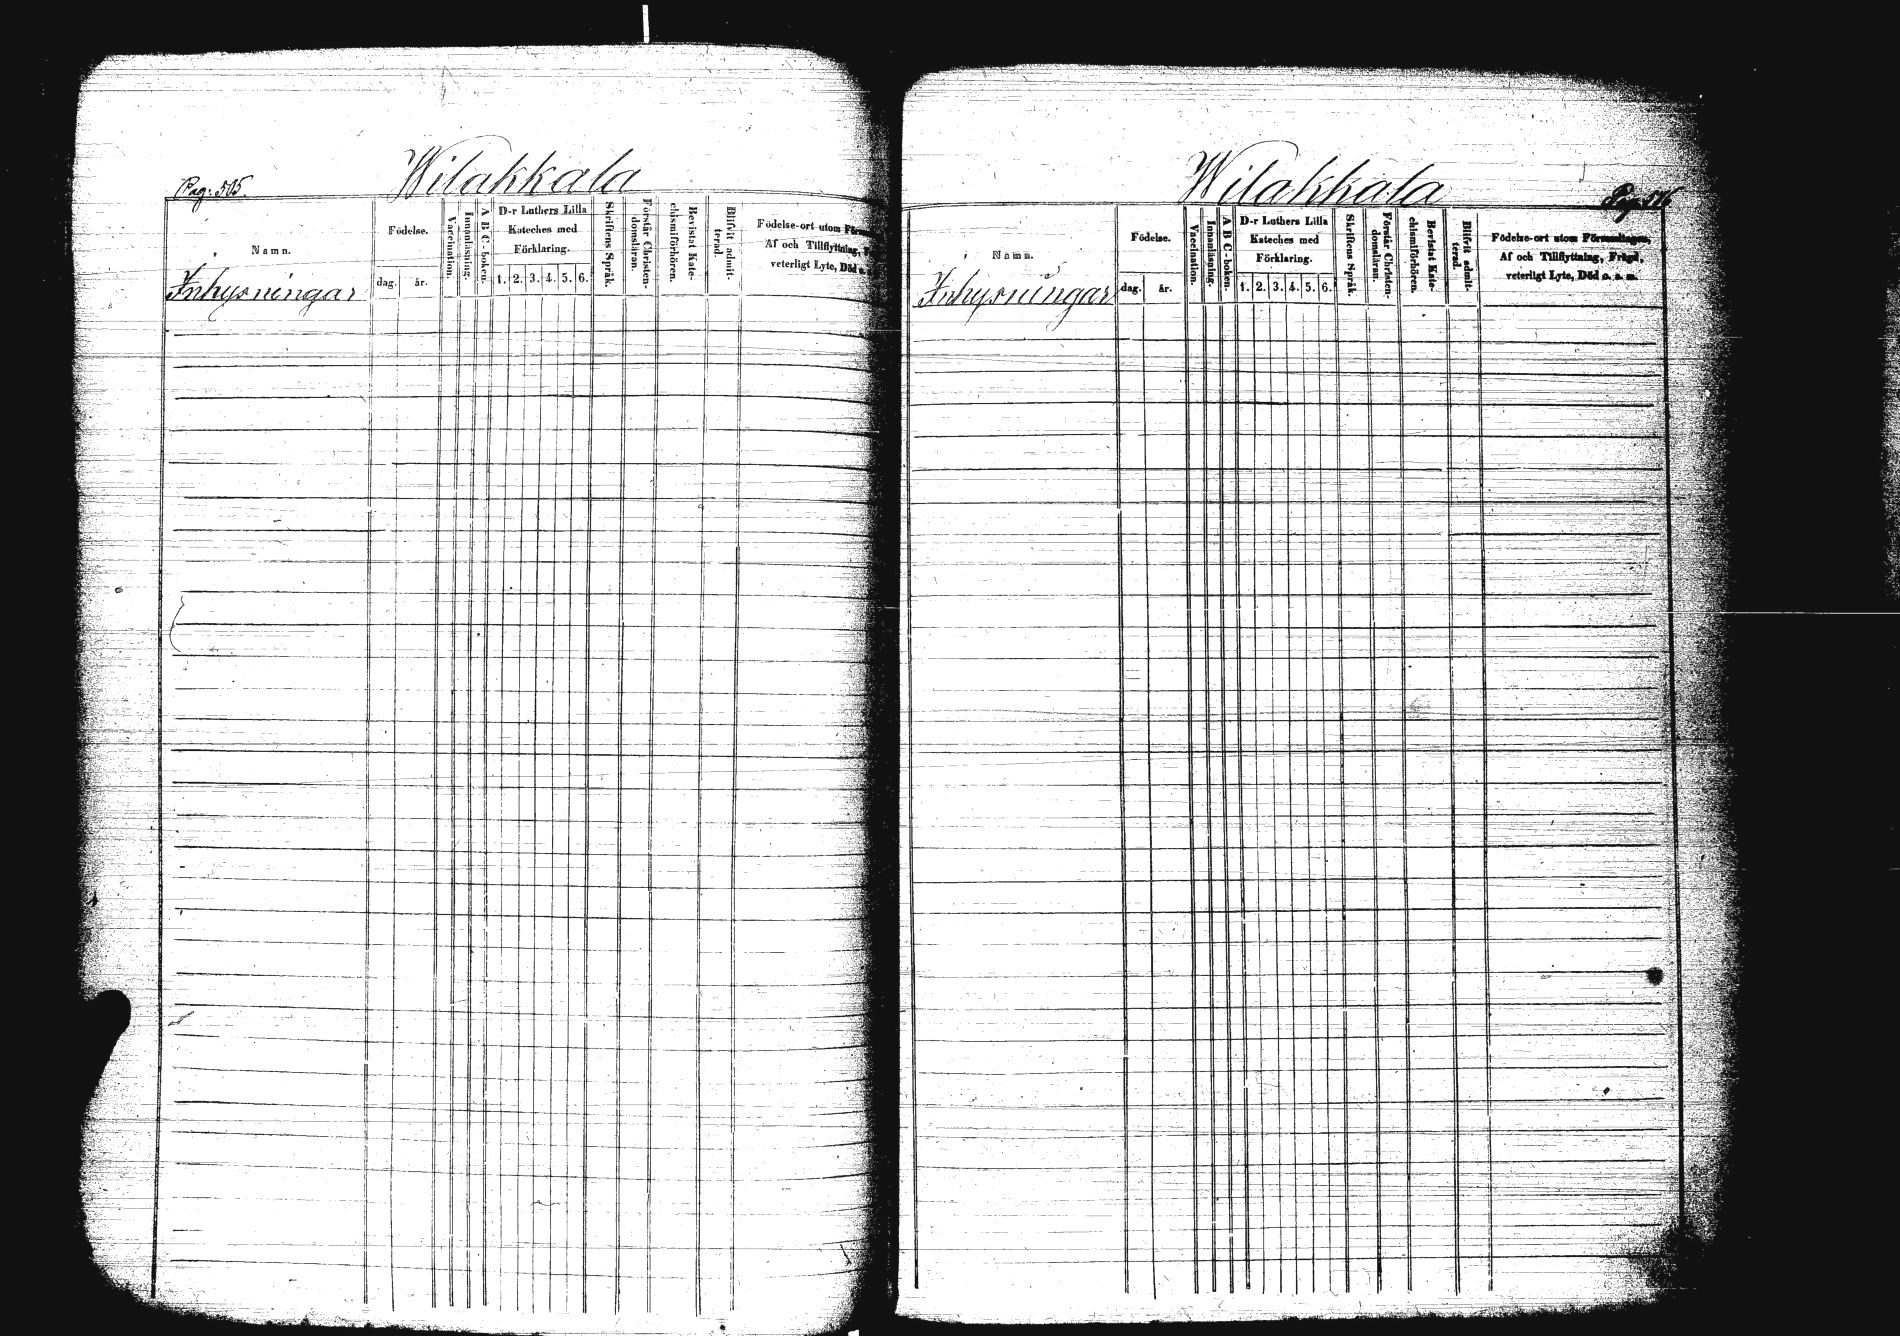 Wilakkala
Pag: 505.
Namn.
Inhysningar
Födelse.
dag. år.
Vaccination.
Innanläsning.
A B C-boken.
D-r Luthers Lilla
Kateches med
Förklaring.
1. 2. 3. 4. 5. 6.
Skriftens Språk.
Förstår Christen-
domsläran.
Bevistat Kate-
chismiförhören.
Blifvit admit-
terad.
Födelse-ort utom
Af och Tillflyttning,
veterligt Lyte, Död o.
Wilakkala
Namn.
Inhysningar
Födelse.
dag. år.
Vaccination.
Innanläsning.
A B C-boken.
D-r Luthers Lilla
Kateches med
Förklaring.
1. 2. 3. 4. 5. 6.
Skriftens Språk.
Förstår Christen-
domsläran.
Bevistat Kate-
chismiförhören.
Blifvit admit-
terad.
Födelse-ort utom Församlingen,
Af och Tillflyttning, Frägd,
veterligt Lyte, Död o. s. m.